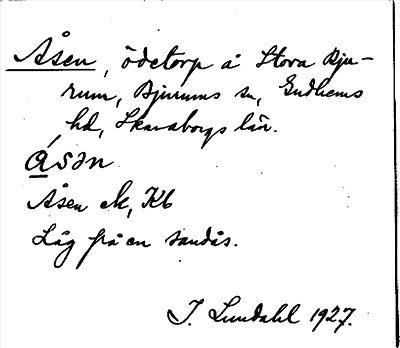 Åsen, ödetorp å Stora Bju-
rum, Bjurums sn, Gudhems
hd, Skaraborgs län.
ásən
Åsen Ek, Kb
Låg på en sandås.
I. Lundahl 1927.